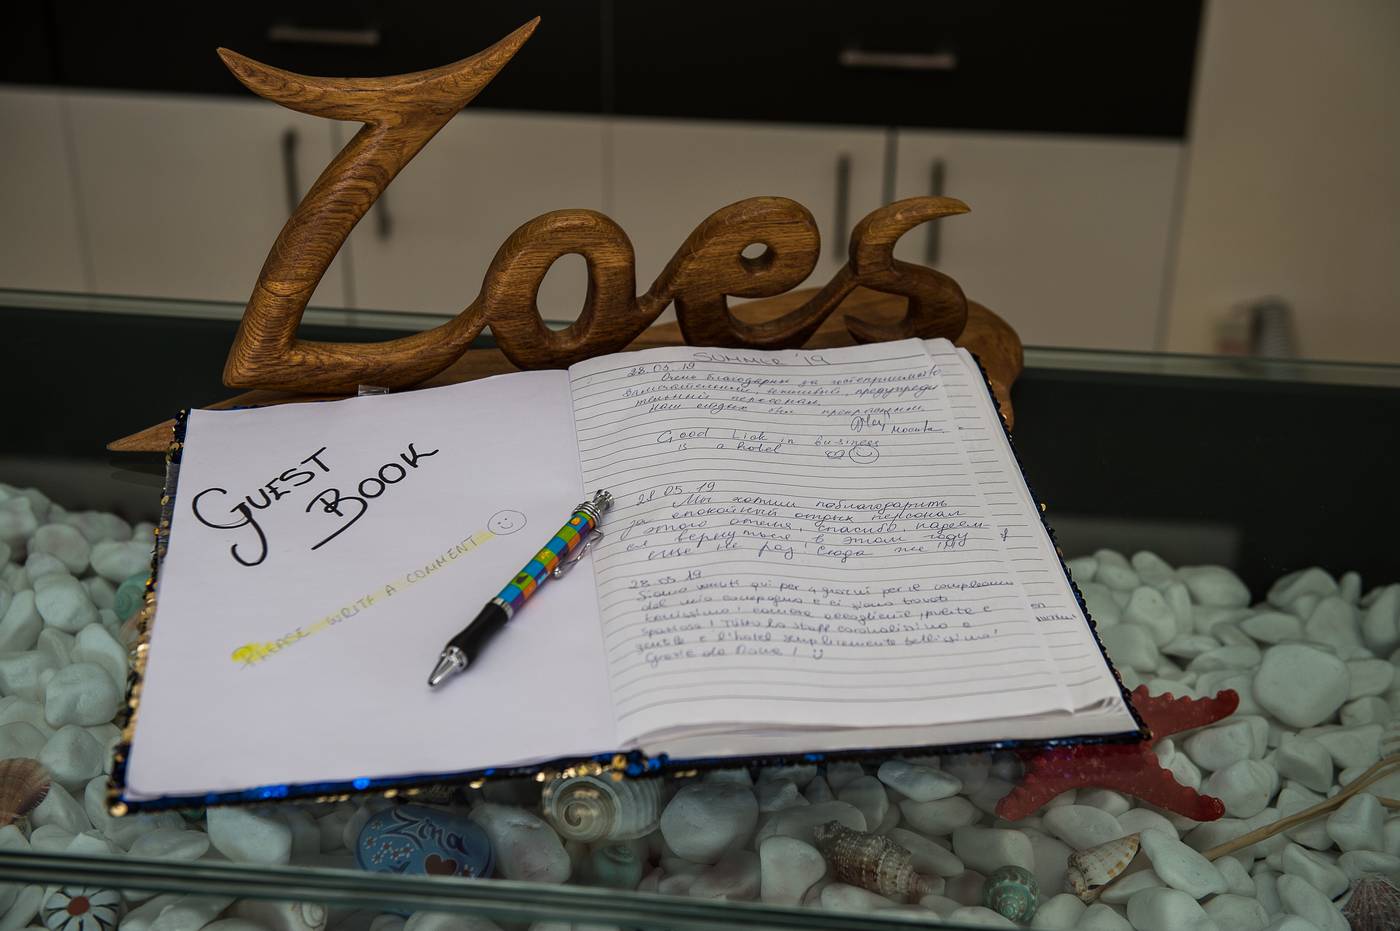 Zoes
GUEST
BOOK
PLEASE WRITE A COMMENT
SUMMER '19
28.05.19
Очень благодарны за гостеприимство,
замечательный, вежливый, предупреди
тельный персонал.
Наш отдых был прекрасный.
Москва.
Good Luck in business
is a hotel
28 05.19
Мы хотим поблагодарить
за спокойный отдых персонал
этого отеля, спасибо, надеем-
ся вернуться в этом году
еще не раз! Сюда же!!!
28.05.19
Siamo venuti qui per 4 giorni per il compleanno
del mio compagno e ci siamo trovati
benissimo! camere accogliente, pulite e
spaziose! Tutto lo staff cordialissimo e
gentile e l'hotel semplicemente bellissimo!
Grazie da
Zina